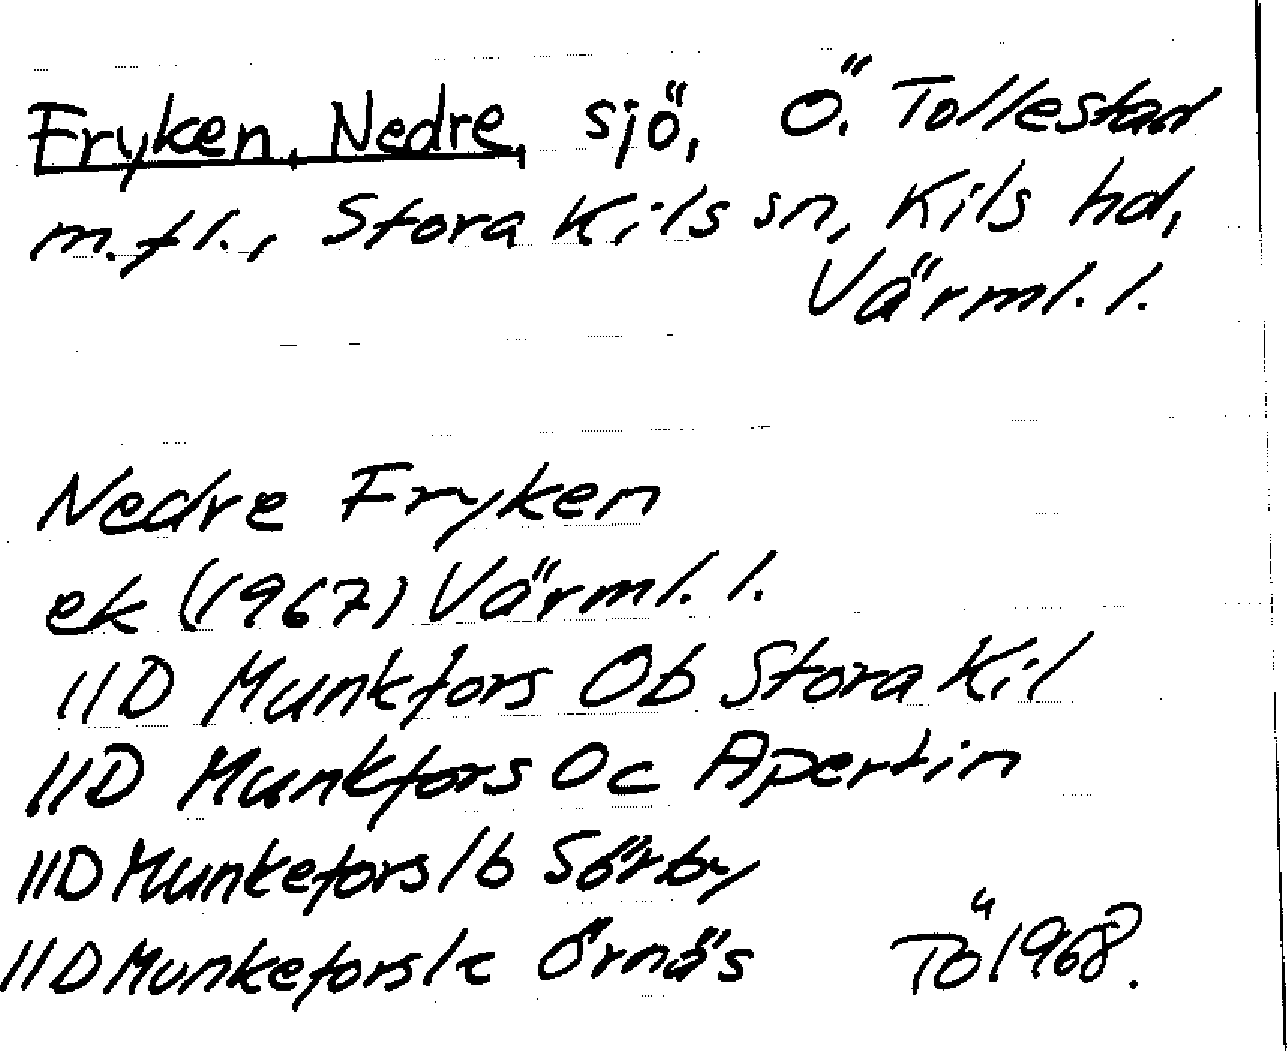 Fryken, Nedre, sjö, Ö. Tollestad
m.fl., Stora Kils sn, Kils hd,
Värml. l.
Nedre Fryken
ek (1967) Värml. l.
11D Munkfors 0b Stora Kil
11D Munkfors 0c Apertin
11D Munkefors 1b Sörby
11D Munkefors 1c Örnäs TÖ 1968.